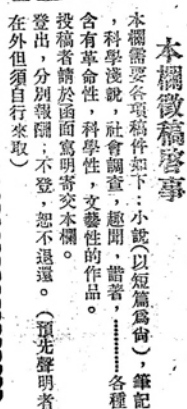 本欄徵稿啓事
本欄需要各項稿件如下：小說(以短篇爲尙)，筆記
，科學淺說，社會調査，趣聞，諧著，…………各種
含有革命性，科學性，文藝性的作品。
投稿者請於函面寫明寄交本欄。
登出，分別報酬；不登，恕不退還。（預先聲明者
在外但須自行來取）